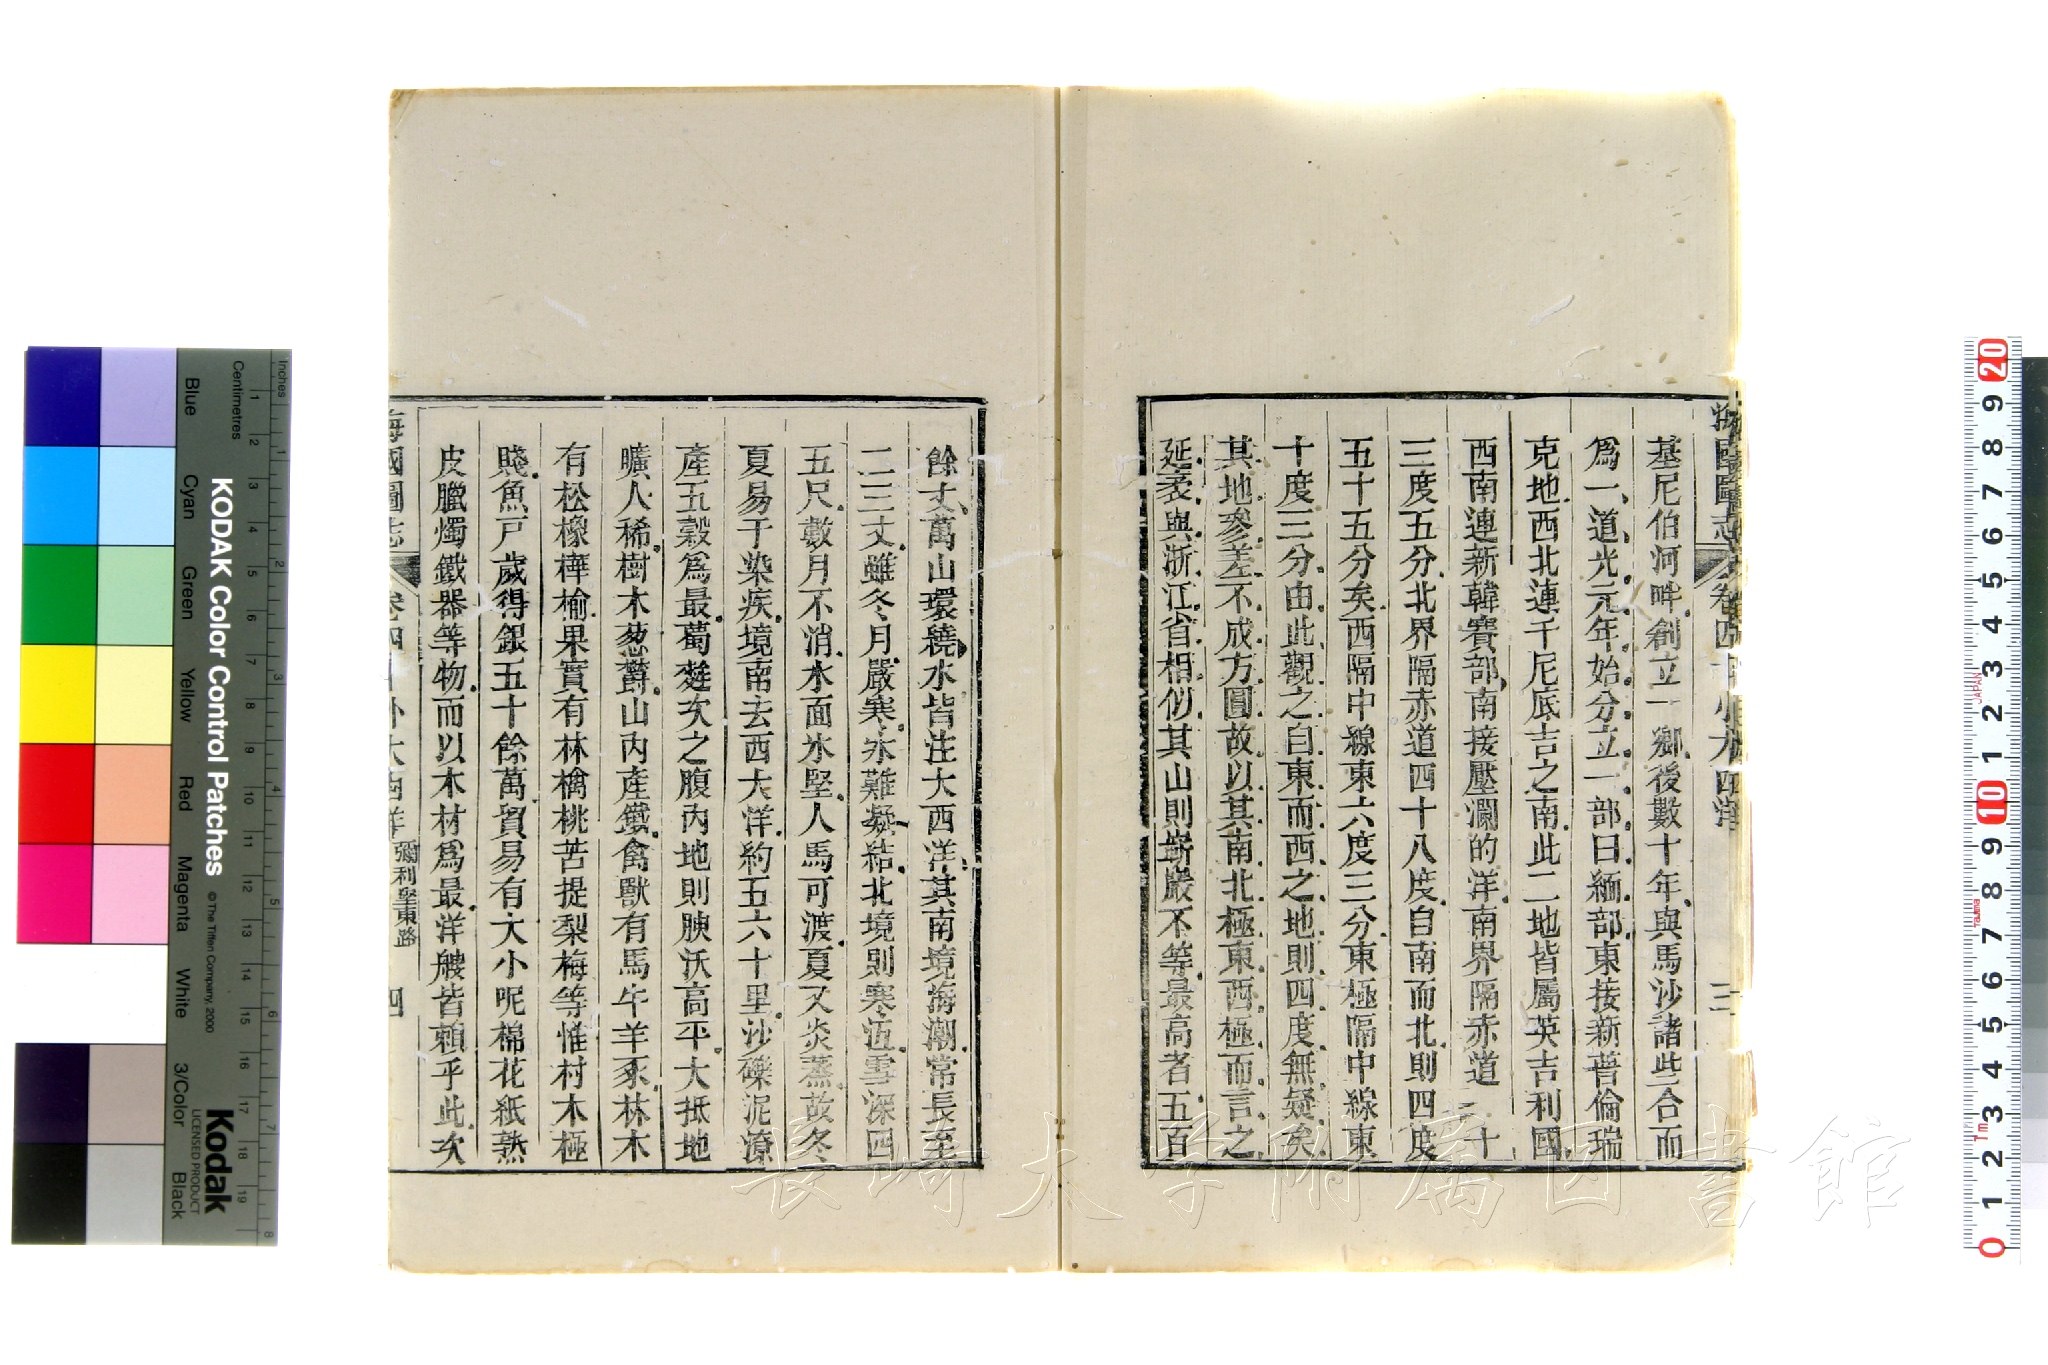 基尼伯河畔創立一鄉後數十年與馬沙諸些合而
爲一道光元年始分立一部曰緬部東接新普倫瑞
克地西北連千尼底吉之南此二地皆屬英吉利國
西南連新韓賽部南接壓瀾的洋南界隔赤道二十
三度五分北界隔赤道四十八度自南而北則四度
五十五分矣西隔中線東六度三分東極隔中線東
十度三分由此觀之自東而西之地則四度無疑矣
其地參差不成方圓故以其南北極東西極而言之
延袤與浙江省相似其山則嶄嚴不等最高者五百
餘丈萬山環繞水皆注大西洋其南境海潮常長至
二三丈雖冬月嚴寒氷難凝結北境則寒沍雪深四
五尺數月不消水面氷堅人馬可渡夏又炎蒸故冬
夏易于染疾境南去西大洋約五六十里沙礫泥潦
產五穀爲最蔔蕤次之腹內地則腴沃高平大抵地
曠人稀樹木葱欝山內產鐵禽獸有馬牛羊豕林木
有松橡樺榆果實有林檎桃苦提梨梅等惟村木極
賤魚戸歲得銀五十餘萬貿易有大小呢棉花紙熟
皮臘燭鐵器等物而以木材爲最洋艘皆賴乎此次
海國圖志 卷四十 外大西洋 彌利堅東路 四
KODAK Color Control Patches
© The Tiffen Company, 2000
Kodak
LICENSED PRODUCT
Inches
Centimetres
Blue
Cyan
Green
Yellow
Red
Magenta
White
3/Color
Black
長崎大学附属図書館
JAPAN